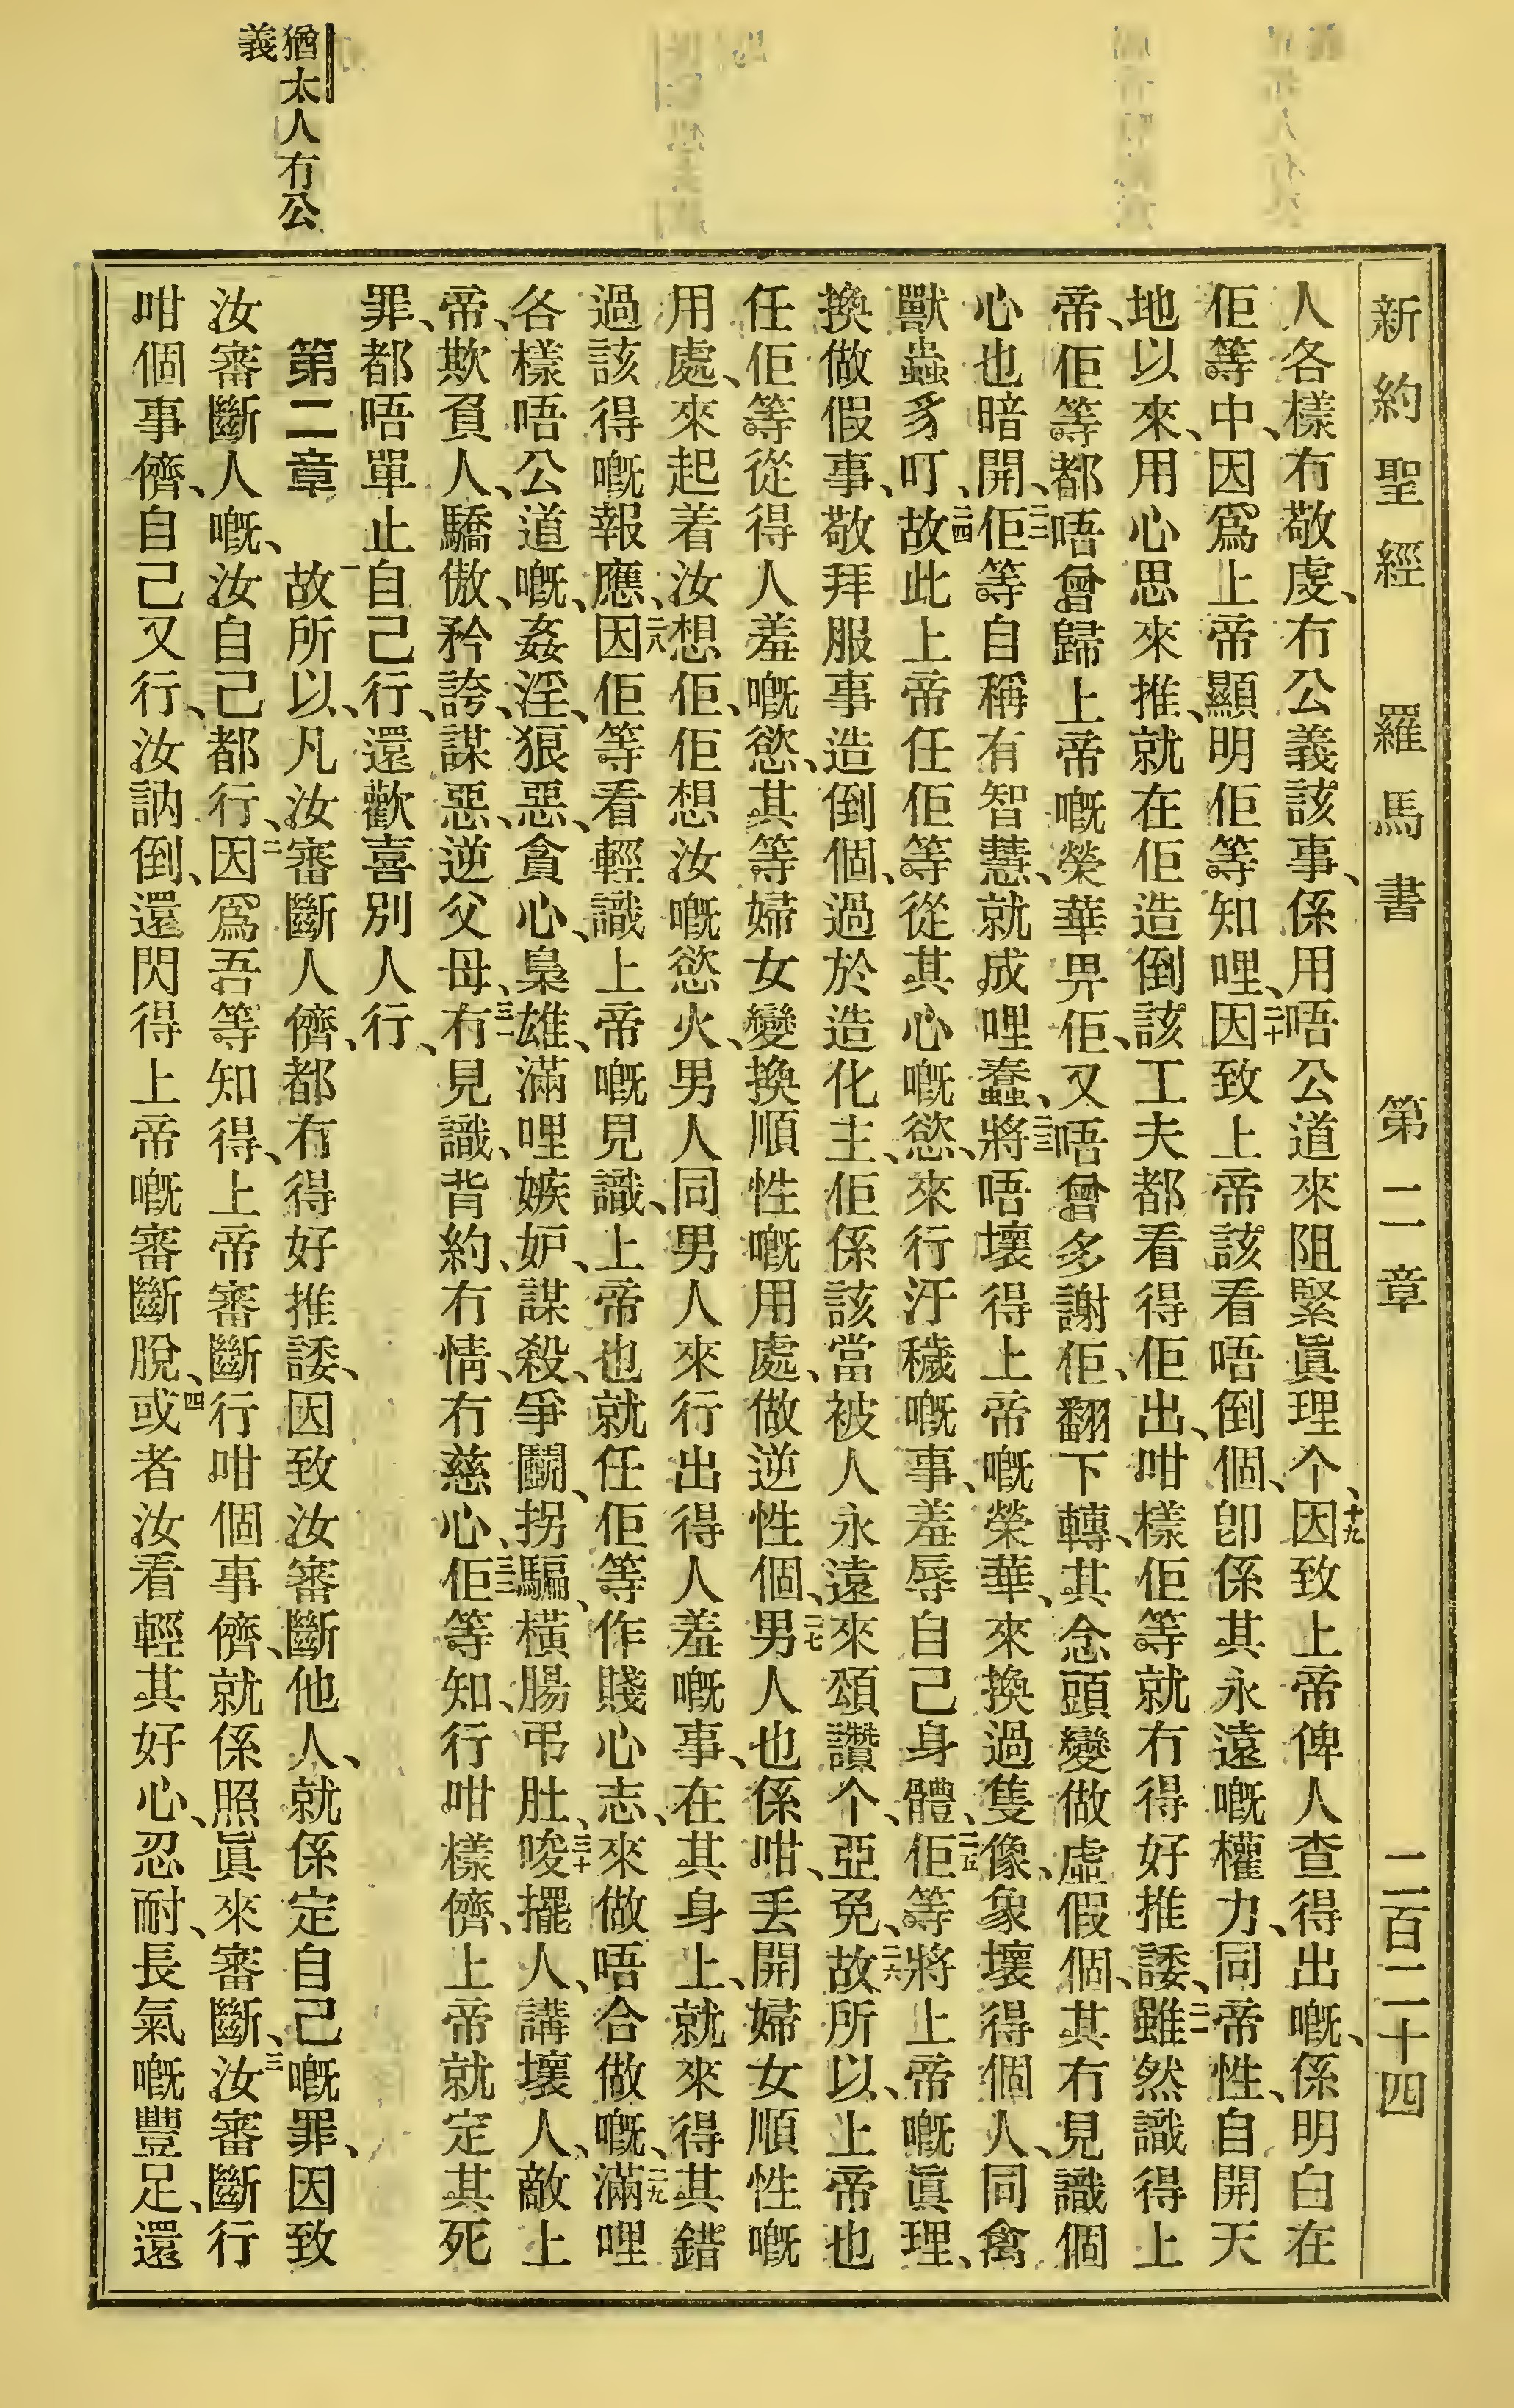 新約聖經 羅馬書 第二章 二百二十四
人各樣冇敬虔、冇公義該事、係用唔公道來阻緊眞理个、十九因致上帝俾人查得出嘅、係明白在
佢等中、因爲上帝顯明佢等知哩、二十因致上帝該看唔倒個、卽係其永遠嘅權力、同帝性、自開天
地以來、用心思來推、就在佢造倒該工夫都看得佢出、咁樣佢等就冇得好推諉、二一雖然識得上
帝、佢等都唔曾歸上帝嘅榮華畀佢、又唔曾多謝佢、翻下轉、其念頭變做虛假個、其冇見識個
心也暗開、二二佢等自稱有智慧、就成哩蠢、二三將唔壞得上帝嘅榮華、來換過隻像、象壞得個人、同禽
獸蟲豸叮、二四故此上帝任佢等從其心嘅慾、來行汙穢嘅事、羞辱自己身體、二五佢等將上帝嘅眞理、
換做假事、敬拜服事造倒個、過於造化主、佢係該當被人永遠來頌讚个、亞免、二六故所以、上帝也
任佢等從得人羞嘅慾、其等婦女變換順性嘅用處、做逆性個、二七男人也係咁、丟開婦女順性嘅
用處、來起着汝想佢、佢想汝嘅慾火、男人同男人來行出得人羞嘅事、在其身上、就來得其錯
過該得嘅報應、二八因佢等看輕識上帝嘅見識、上帝也就任佢等作賤心志、來做唔合做嘅、二九滿哩
各樣唔公道嘅、姦淫、狠惡、貪心、梟雄、滿哩嫉妒、謀殺、爭鬬、拐騙、橫腸吊肚、三十唆擺人、講壞人、敵上
帝、欺負人、驕傲、矜誇、謀惡、逆父母、三一冇見識、背約、冇情、冇慈心、三二佢等知、行咁樣儕、上帝就定其死
罪、都唔單止自己行、還歡喜別人行、
第二章 一故所以、凡汝審斷人儕、都冇得好推諉、因致汝審斷他人、就係定自己嘅罪、因致
汝審斷人嘅、汝自己都行、二因爲吾等知得、上帝審斷行咁個事儕、就係照眞來審斷、三汝審斷行
咁個事儕、自己又行、汝訥倒、還閃得上帝嘅審斷脫、四或者汝看輕其好心、忍耐、長氣嘅豐足、還
猶太人冇公
義